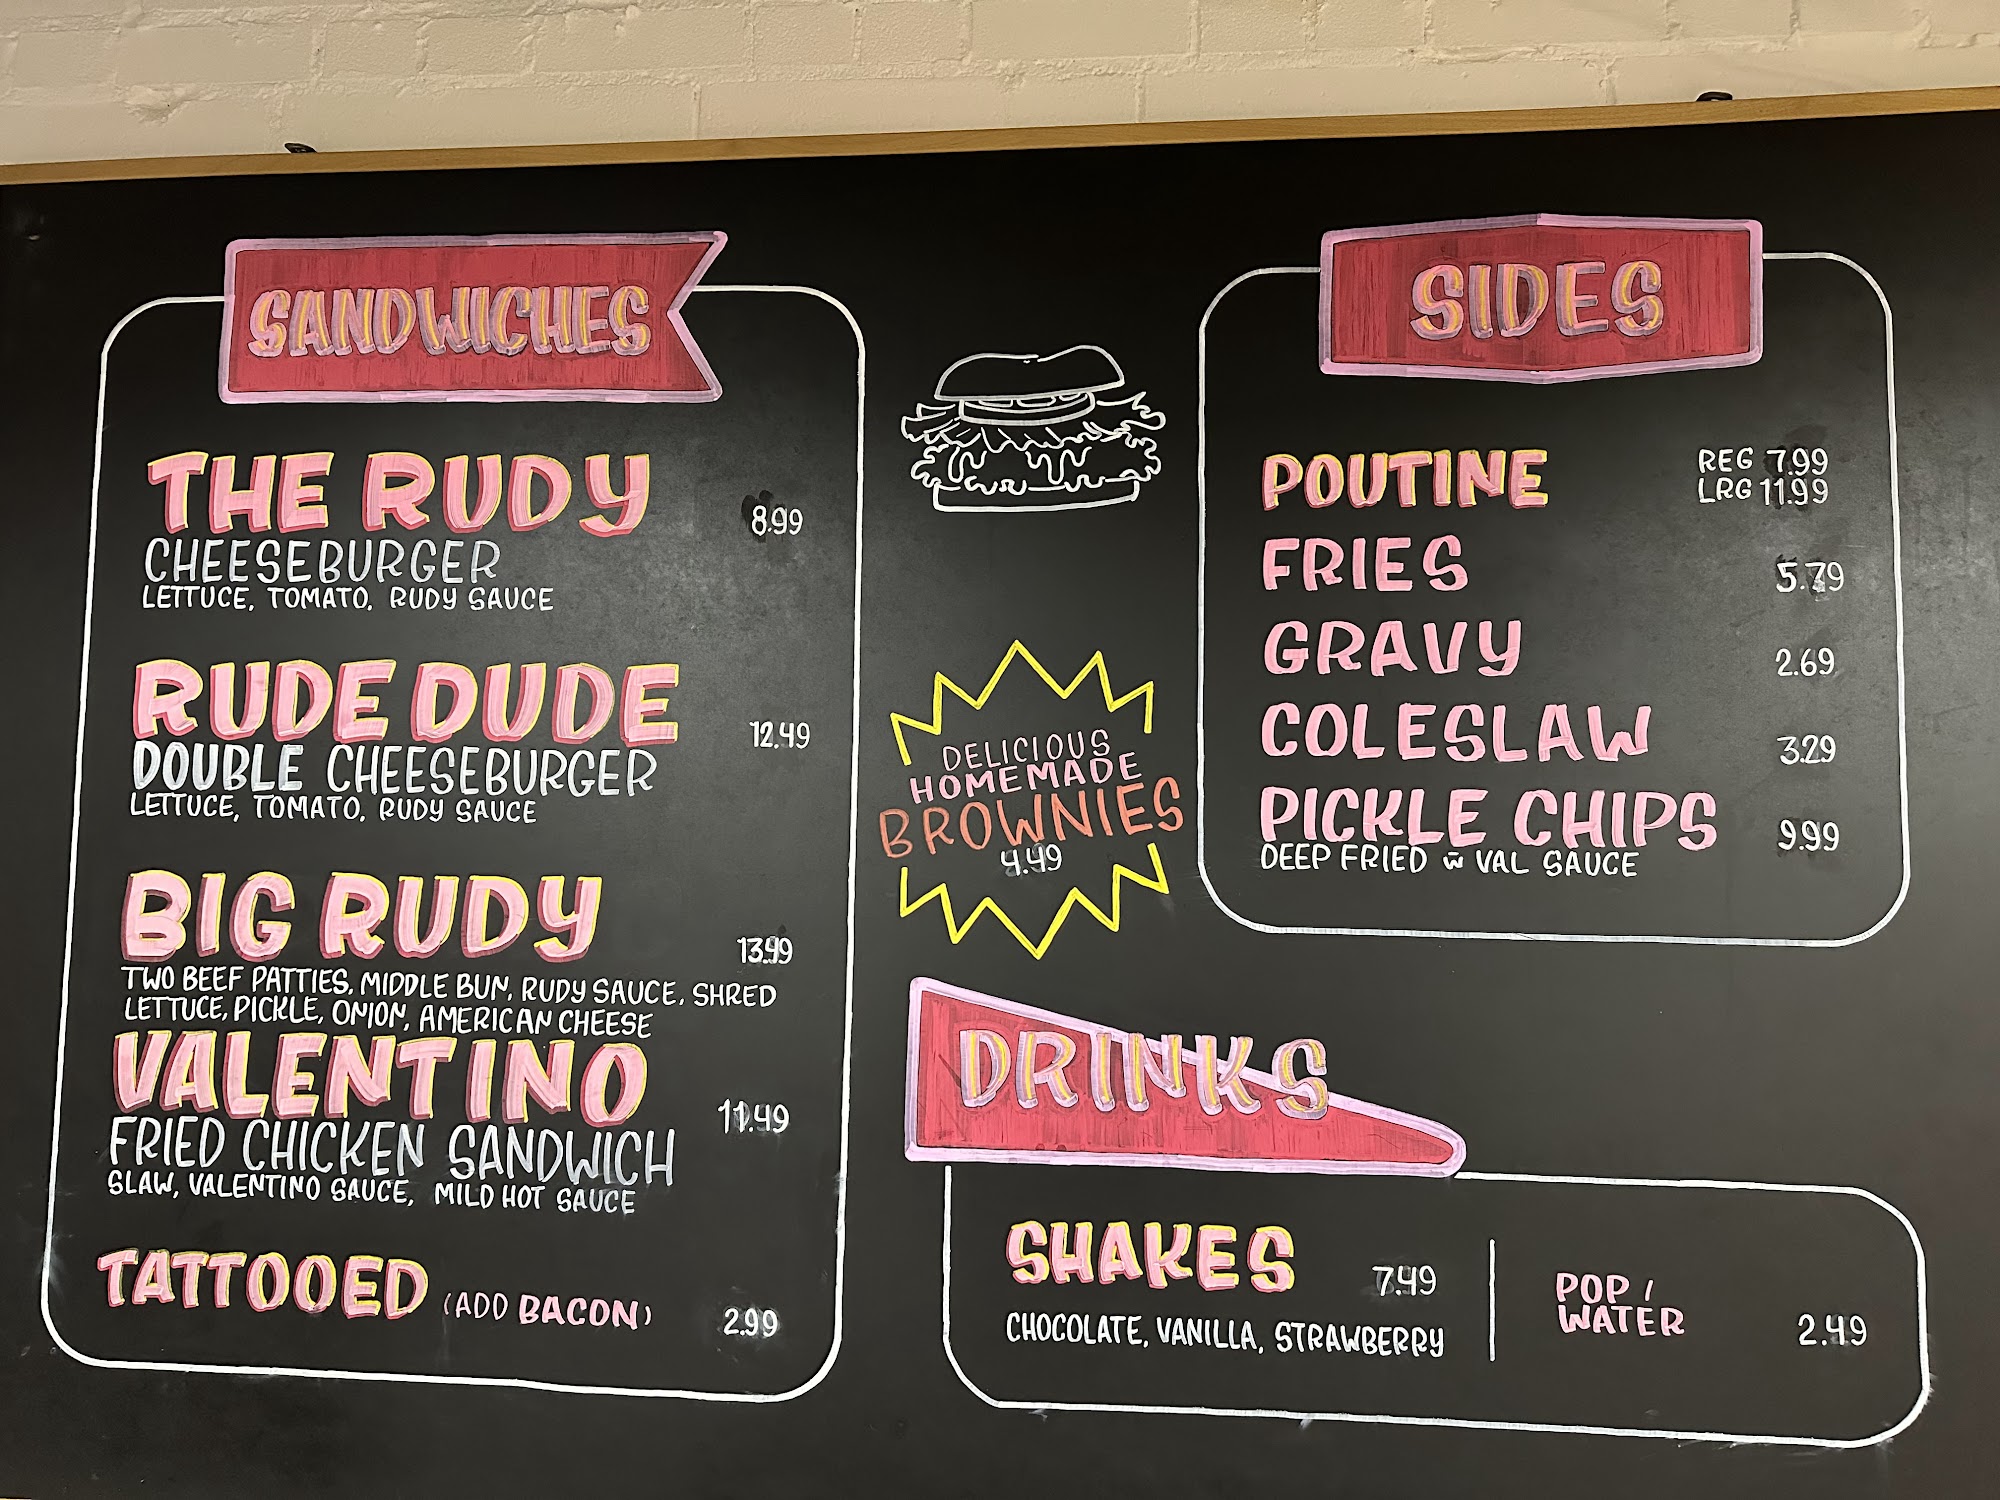 SANDWICHES
THE RUDY
8.99
CHEESEBURGER
LETTUCE, TOMATO, RUDY SAUCE
RUDE DUDE
12.49
DOUBLE CHEESEBURGER
LETTUCE, TOMATO, RUDY SAUCE
BIG RUDY
13.99
TWO BEEF PATTIES, MIDDLE BUN, RUDY SAUCE, SHRED
LETTUCE, PICKLE, ONION, AMERICAN CHEESE
VALENTINO
11.49
FRIED CHICKEN SANDWICH
SLAW, VALENTINO SAUCE, MILD HOT SAUCE
TATTOOED (ADD BACON)
2.99
DELICIOUS
HOMEMADE
BROWNIES
4.49
SIDES
POUTINE REG 7.99
LRG 11.99
FRIES 5.79
GRAVY 2.69
COLESLAW 3.29
PICKLE CHIPS 9.99
DEEP FRIED w̃ VAL SAUCE
DRINKS
SHAKES 7.49
CHOCOLATE, VANILLA, STRAWBERRY
POP /
WATER 2.49